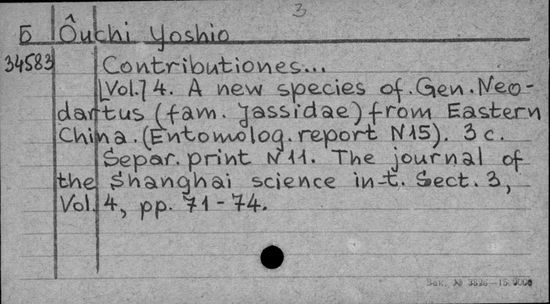 3
Б Ôuchi Yoshio
34583 Contributiones...
[Vol.] 4. A new species of Gen. Neo-
dartus (fam. Jassidae) from Eastern
China. (Entomolog. report N15). 3 c.
Separ. print N 11. The journal of
the Shanghai science in-t. Sect. 3,
Vol. 4, pp. 71-74.
Зак. № 3826—15.000